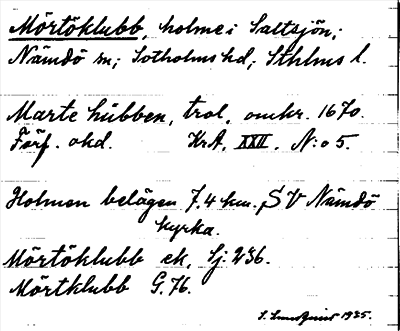 Mörtöklubb, holme i Saltsjön,
Nämdö sn; Sotholms hd; Sthlms l.
Marte hübben, trol. omkr. 1670.
Förf. okd. KrA. XXII. N:o 5.
Holmen belägen 7.4 km. SV Nämdö
kyrka.
Mörtöklubb ek. Sj. 236.
Mörtklubb G. 76.
1935.